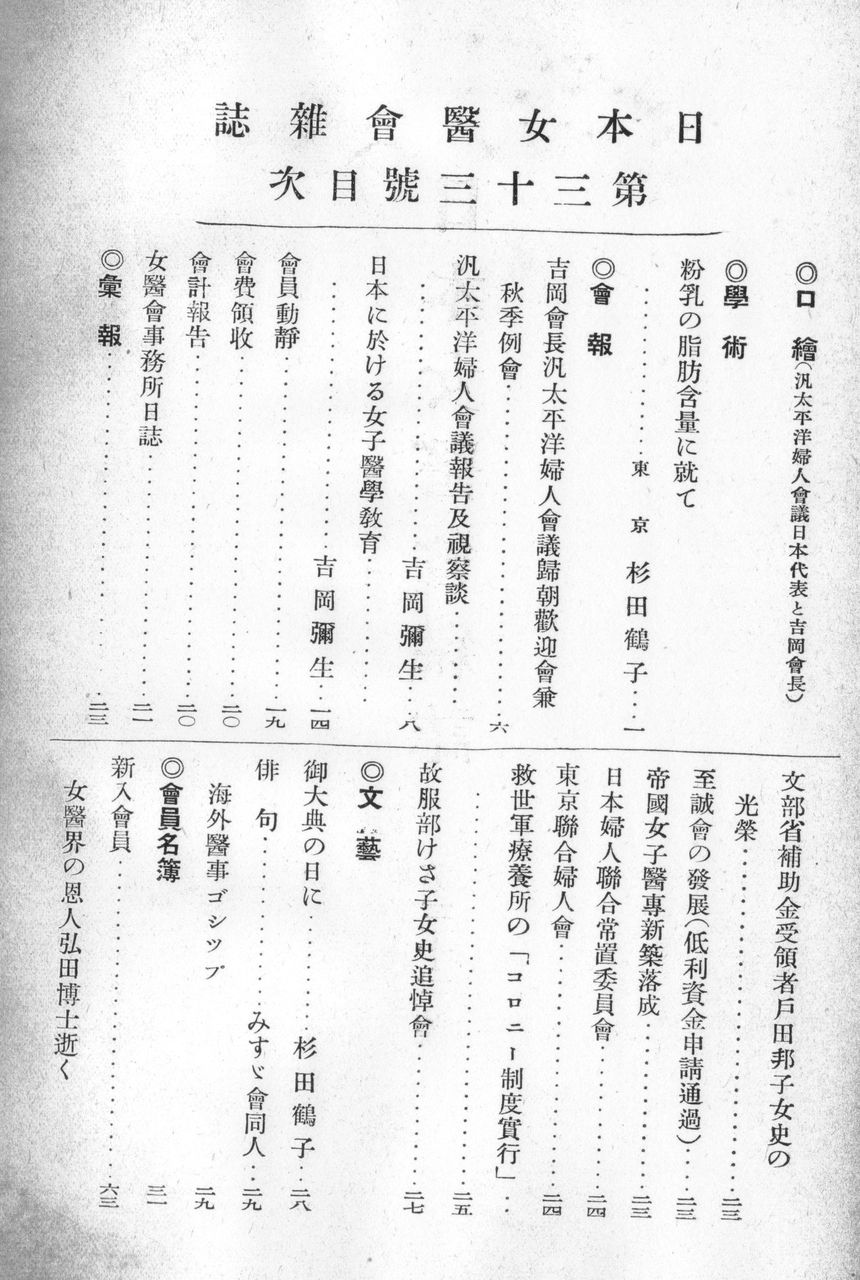 日本女醫會雜誌
第三十三號目次
◎口繪(汎太平洋婦人會議日本代表と吉岡會長)
◎學術
粉乳の脂肪含量に就て
‥‥‥‥‥‥東京 杉田鶴子‥‥一
◎會報
吉岡會長汎太平洋婦人會議歸朝歡迎會兼
秋季例會‥‥‥‥‥‥‥‥‥‥六
汎太平洋婦人會議報告及視察談‥‥‥
‥‥‥‥‥‥‥‥吉岡彌生‥‥八
日本に於ける女子醫學教育‥‥‥‥
‥‥‥‥‥‥‥‥吉岡彌生‥‥一四
會員動靜‥‥‥‥‥‥‥‥‥‥一九
會費領收‥‥‥‥‥‥‥‥‥‥二〇
會計報告‥‥‥‥‥‥‥‥‥‥二〇
女醫會事務所日誌‥‥‥‥‥‥‥二一
◎彙報‥‥‥‥‥‥‥‥‥‥‥二三
文部省補助金受領者戶田邦子女史の
光榮‥‥‥‥‥‥‥‥‥‥‥二三
至誠會の發展(低利資金申請通過)‥‥二三
帝國女子醫專新築落成‥‥‥‥‥‥二三
日本婦人聯合常置委員會‥‥‥‥‥二四
東京聯合婦人會‥‥‥‥‥‥‥‥二四
救世軍療養所の「コロニー制度實行」‥
‥‥‥‥‥‥‥‥‥‥‥‥‥二五
故服部けさ子女史追悼會‥‥‥‥‥二七
◎文藝
御大典の日に‥‥‥‥杉田鶴子‥‥二八
俳句‥‥‥‥‥‥みすゞ會同人‥‥二九
海外醫事ゴシツプ 二九
◎會員名簿 三一
新入會員‥‥‥‥‥‥‥‥‥‥六三
女醫界の恩人弘田博士逝く